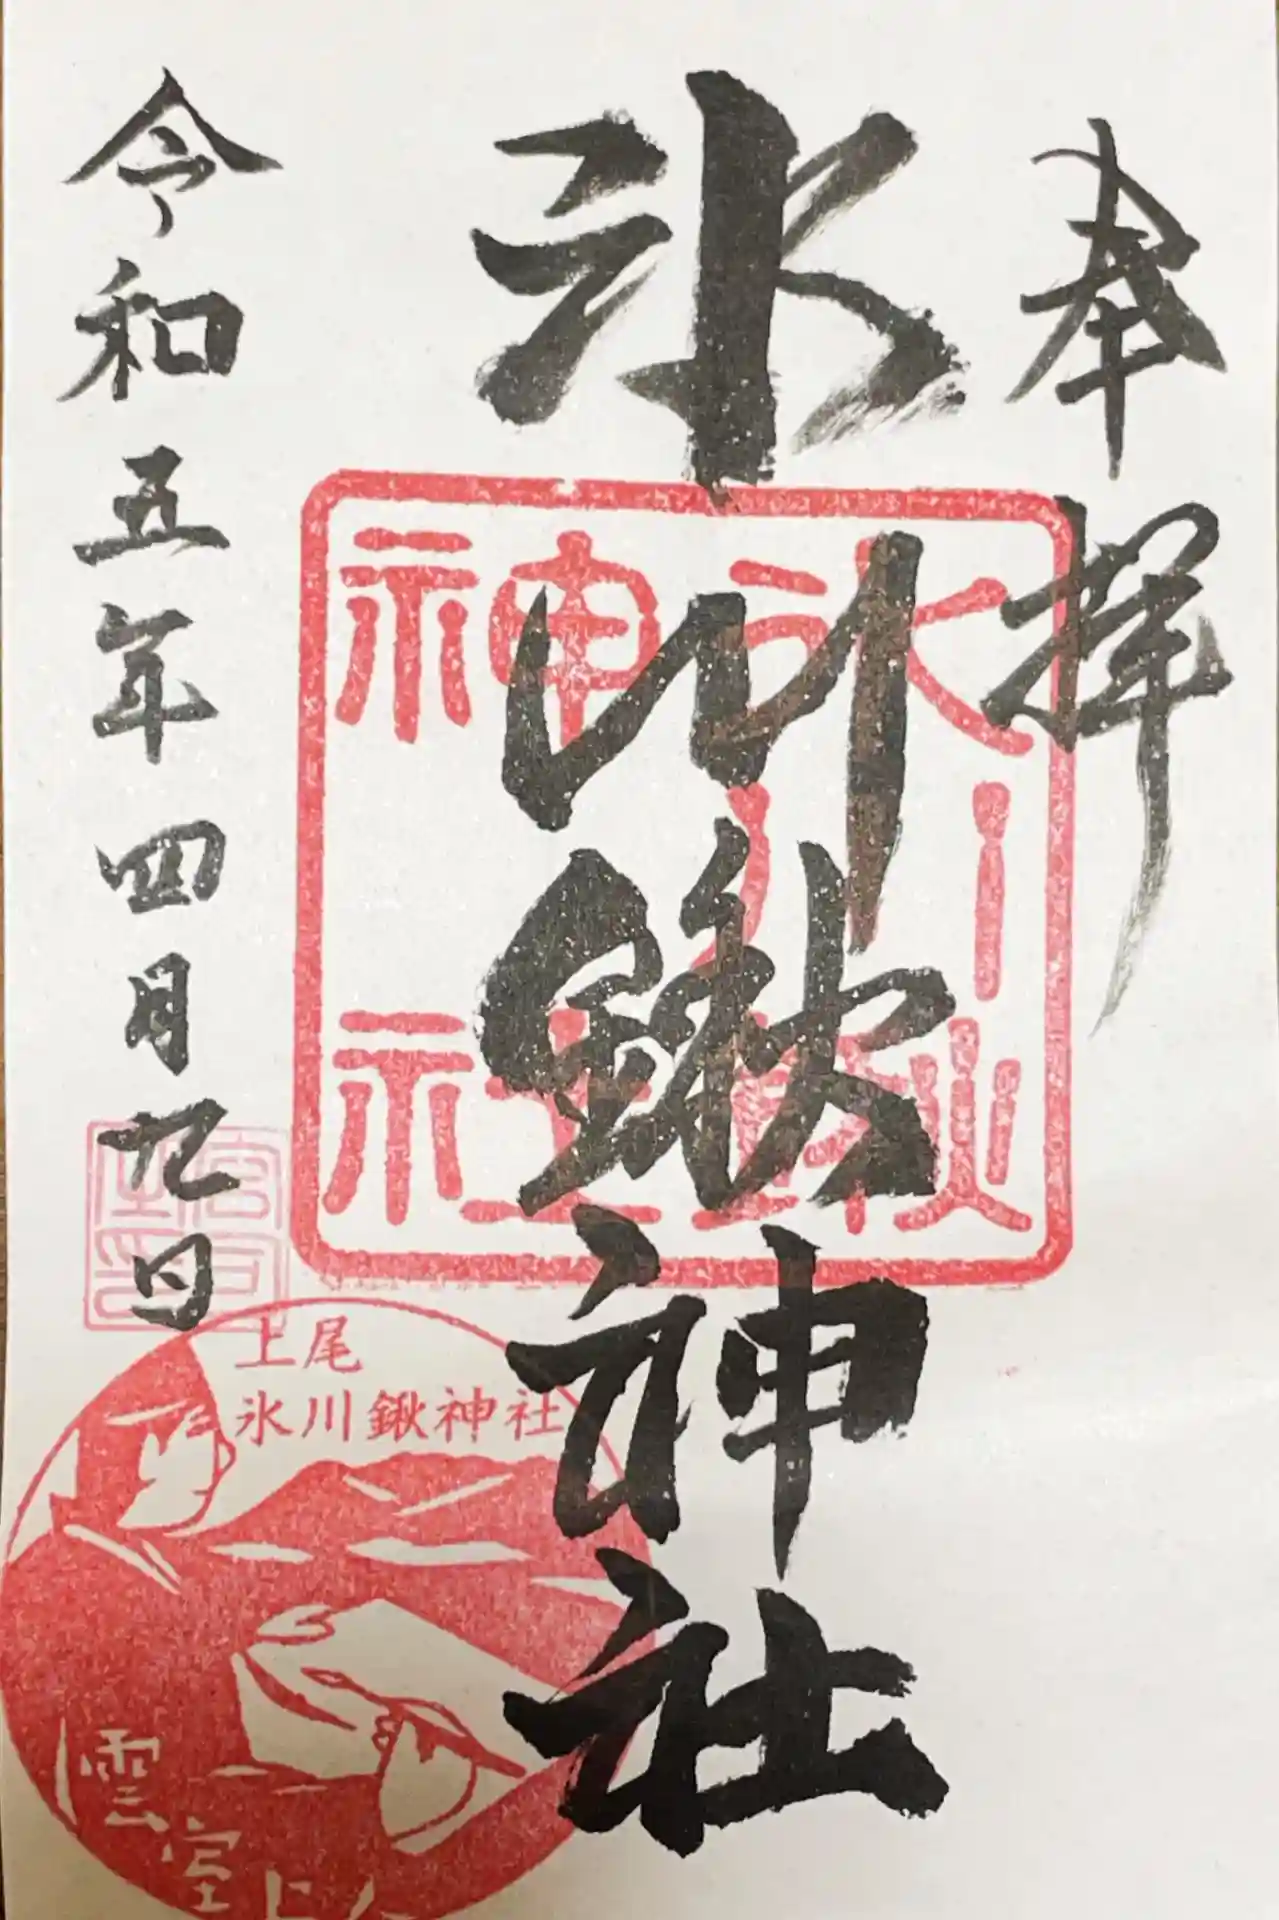 奉拝
氷川鍬神社
氷川
鍬
神社
令和五年四月九日
上尾
氷川鍬神社
雲室上人